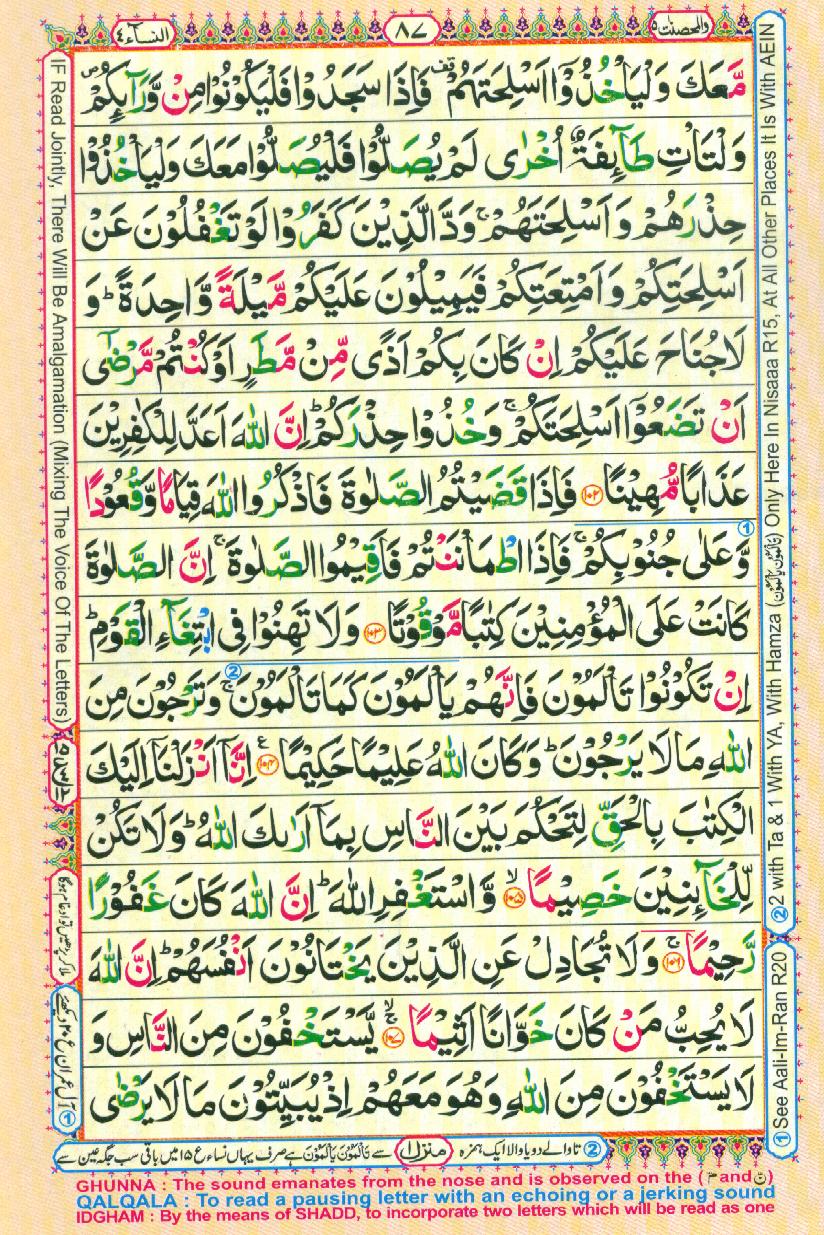 والمحصنت ۵
۸۷
النسآء ۴
مَّعَكَ وَلْيَاْخُذُوْۤا اَسْلِحَتَهُمْ ۫ فَاِذَا سَجَدُوْا فَلْيَكُوْنُوْا مِنْ وَّرَآىِٕكُمْ ۪
وَلْتَاْتِ طَآىِٕفَةٌ اُخْرٰى لَمْ يُصَلُّوْا فَلْيُصَلُّوْا مَعَكَ وَلْيَاْخُذُوْا
حِذْرَهُمْ وَاَسْلِحَتَهُمْ ۚ وَدَّ الَّذِيْنَ كَفَرُوْا لَوْ تَغْفُلُوْنَ عَنْ
اَسْلِحَتِكُمْ وَاَمْتِعَتِكُمْ فَيَمِيْلُوْنَ عَلَيْكُمْ مَّيْلَةً وَّاحِدَةً ؕ وَ
لَا جُنَاحَ عَلَيْكُمْ اِنْ كَانَ بِكُمْ اَذًى مِّنْ مَّطَرٍ اَوْ كُنْتُمْ مَّرْضٰۤى
اَنْ تَضَعُوْۤا اَسْلِحَتَكُمْ ۚ وَخُذُوْا حِذْرَكُمْ ؕ اِنَّ اللّٰهَ اَعَدَّ لِلْكٰفِرِيْنَ
عَذَابًا مُّهِيْنًا ۱۰۲ فَاِذَا قَضَيْتُمُ الصَّلٰوةَ فَاذْكُرُوا اللّٰهَ قِيَامًا وَّقُعُوْدًا
وَّعَلٰى جُنُوْبِكُمْ ۚ فَاِذَا اطْمَاْنَنْتُمْ فَاَقِيْمُوا الصَّلٰوةَ ۚ اِنَّ الصَّلٰوةَ
كَانَتْ عَلَى الْمُؤْمِنِيْنَ كِتٰبًا مَّوْقُوْتًا ۱۰۳ وَلَا تَهِنُوْا فِى ابْتِغَآءِ الْقَوْمِ ؕ
اِنْ تَكُوْنُوْا تَاْلَمُوْنَ فَاِنَّهُمْ يَاْلَمُوْنَ كَمَا تَاْلَمُوْنَ ۚ وَتَرْجُوْنَ مِنَ
اللّٰهِ مَا لَا يَرْجُوْنَ ؕ وَكَانَ اللّٰهُ عَلِيْمًا حَكِيْمًا ۱۰۴ اِنَّاۤ اَنْزَلْنَاۤ اِلَيْكَ
الْكِتٰبَ بِالْحَقِّ لِتَحْكُمَ بَيْنَ النَّاسِ بِمَاۤ اَرٰىكَ اللّٰهُ ؕ وَلَا تَكُنْ
لِّلْخَآىِٕنِيْنَ خَصِيْمًا ۱۰۵ وَّاسْتَغْفِرِ اللّٰهَ ؕ اِنَّ اللّٰهَ كَانَ غَفُوْرًا
رَّحِيْمًا ۱۰۶ وَلَا تُجَادِلْ عَنِ الَّذِيْنَ يَخْتَانُوْنَ اَنْفُسَهُمْ ؕ اِنَّ اللّٰهَ
لَا يُحِبُّ مَنْ كَانَ خَوَّانًا اَثِيْمًا ۱۰۷ يَّسْتَخْفُوْنَ مِنَ النَّاسِ وَ
لَا يَسْتَخْفُوْنَ مِنَ اللّٰهِ وَهُوَ مَعَهُمْ اِذْ يُبَيِّتُوْنَ مَا لَا يَرْضٰى
① See Aali-Im-Ran R20
② 2 with Ta & 1 With YA, With Hamza (تَاْلَمُوْنَ يَاْلَمُوْنَ) Only Here In Nisaaa R15, At All Other Places It Is With AEIN
IF Read Jointly, There Will Be Amalgamation (Mixing The Voice Of The Letters)
ملا کر پڑھیں تو ادغام ہوگا
① آل عمران ع ۲۰ دیکھئے
② تا والے دو یا والا ایک ہمزہ
منزل ۱
سے تَاْلَمُوْنَ يَاْلَمُوْنَ ہے صرف یہاں نساء ع ۱۵ میں باقی سب جگہ عین سے
GHUNNA : The sound emanates from the nose and is observed on the ( مّ and نّ )
QALQALA : To read a pausing letter with an echoing or a jerking sound
IDGHAM : By the means of SHADD, to incorporate two letters which will be read as one